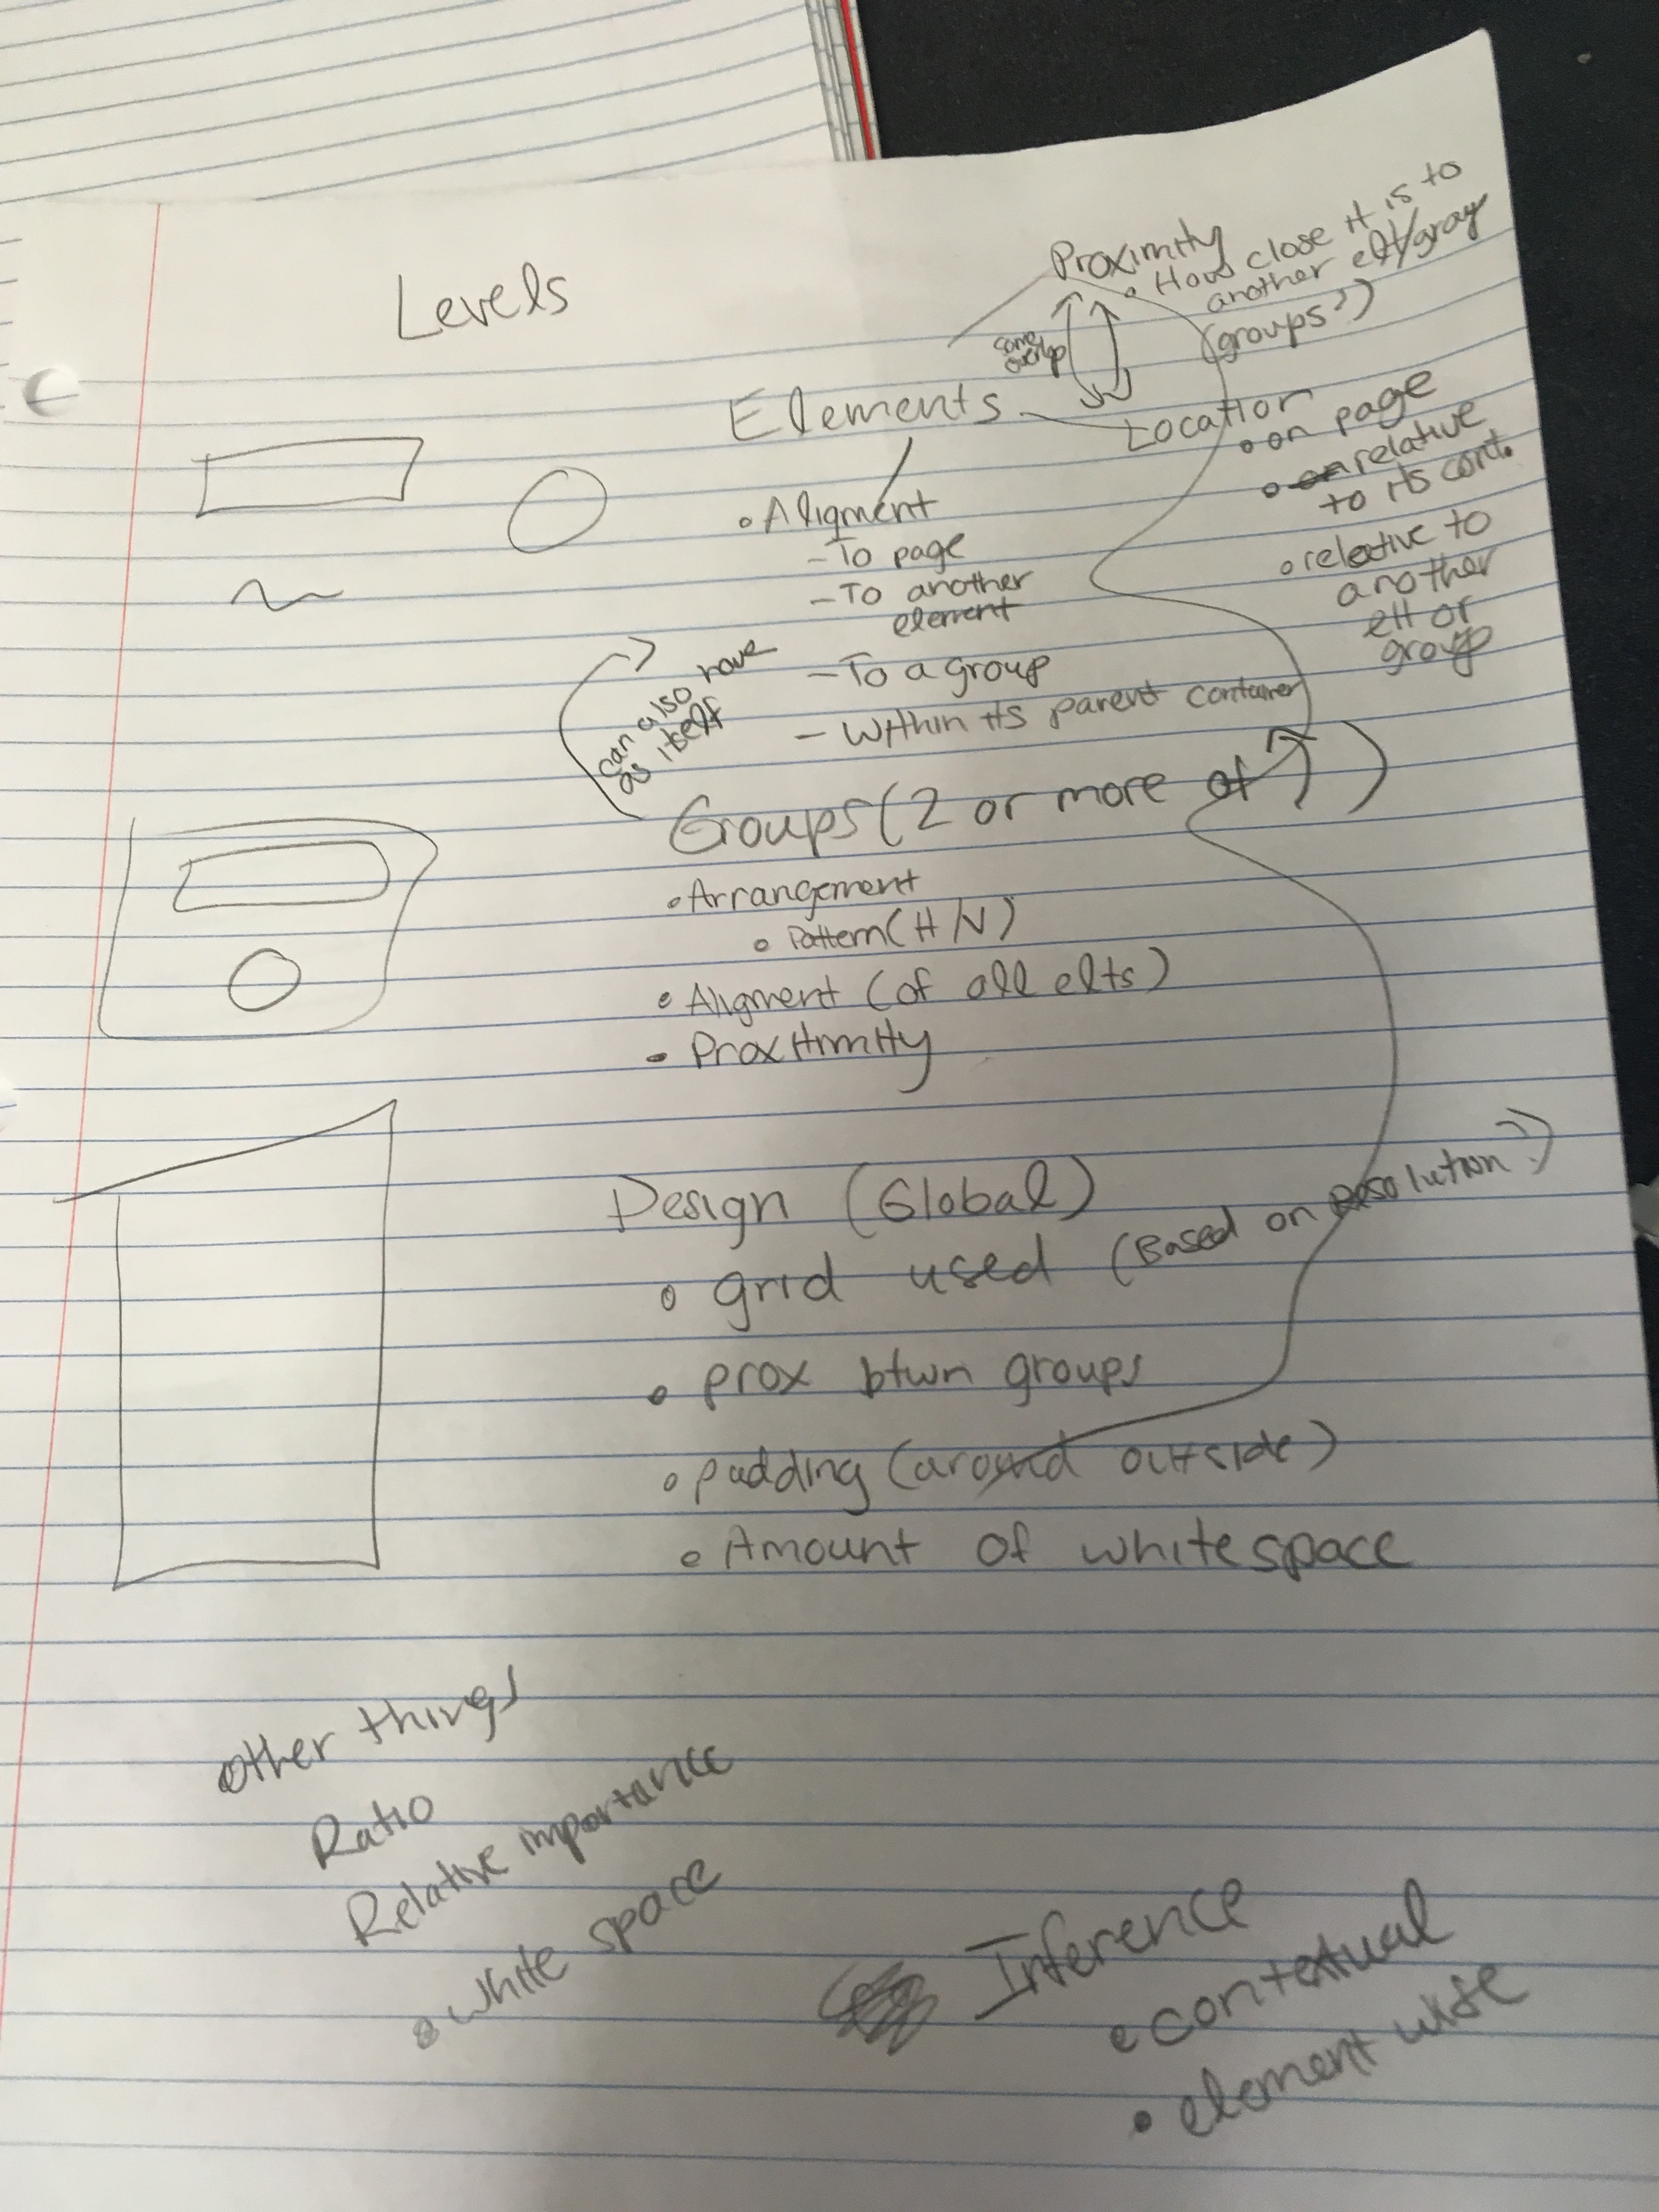 Levels
Proximity
• How close it is to
another elt/group
(groups?)
some
overlap
Elements
Location
• on page
• on relative
to its cont.
• relative to
another
elt or
group
• Aligment
- To page
- To another
element
- To a group
- Within its parent container
can also have
as itself
Groups (2 or more of )
• Arrangement
• Pattern (H/V)
• Aligment (of all elts)
• Proximity
Design (Global)
• grid used (Based on resolution?)
• prox btwn groups
• padding (around outside)
• Amount of whitespace
other things
Ratio
Relative importance
• white space
Inference
• contextual
• element wise